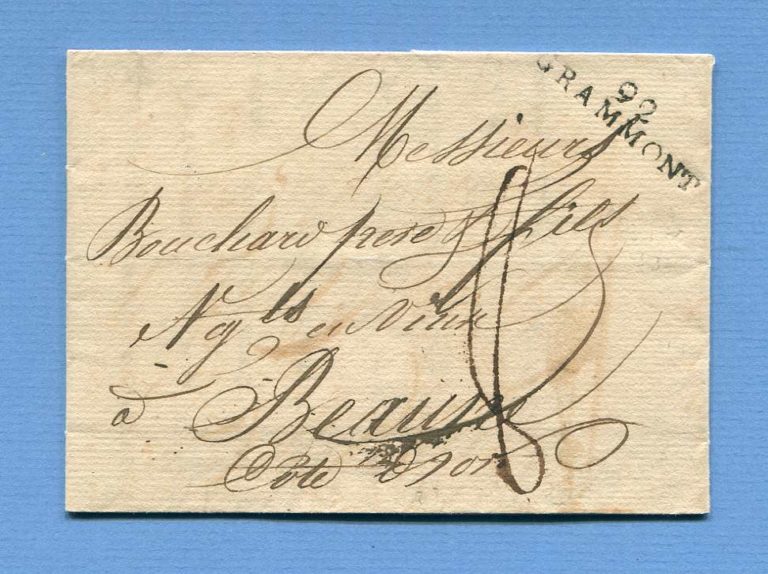 92
GRAMMONT
Messieurs
Bouchard pere & fils
Negts en Vins
à Beaune
Côte d'or
8